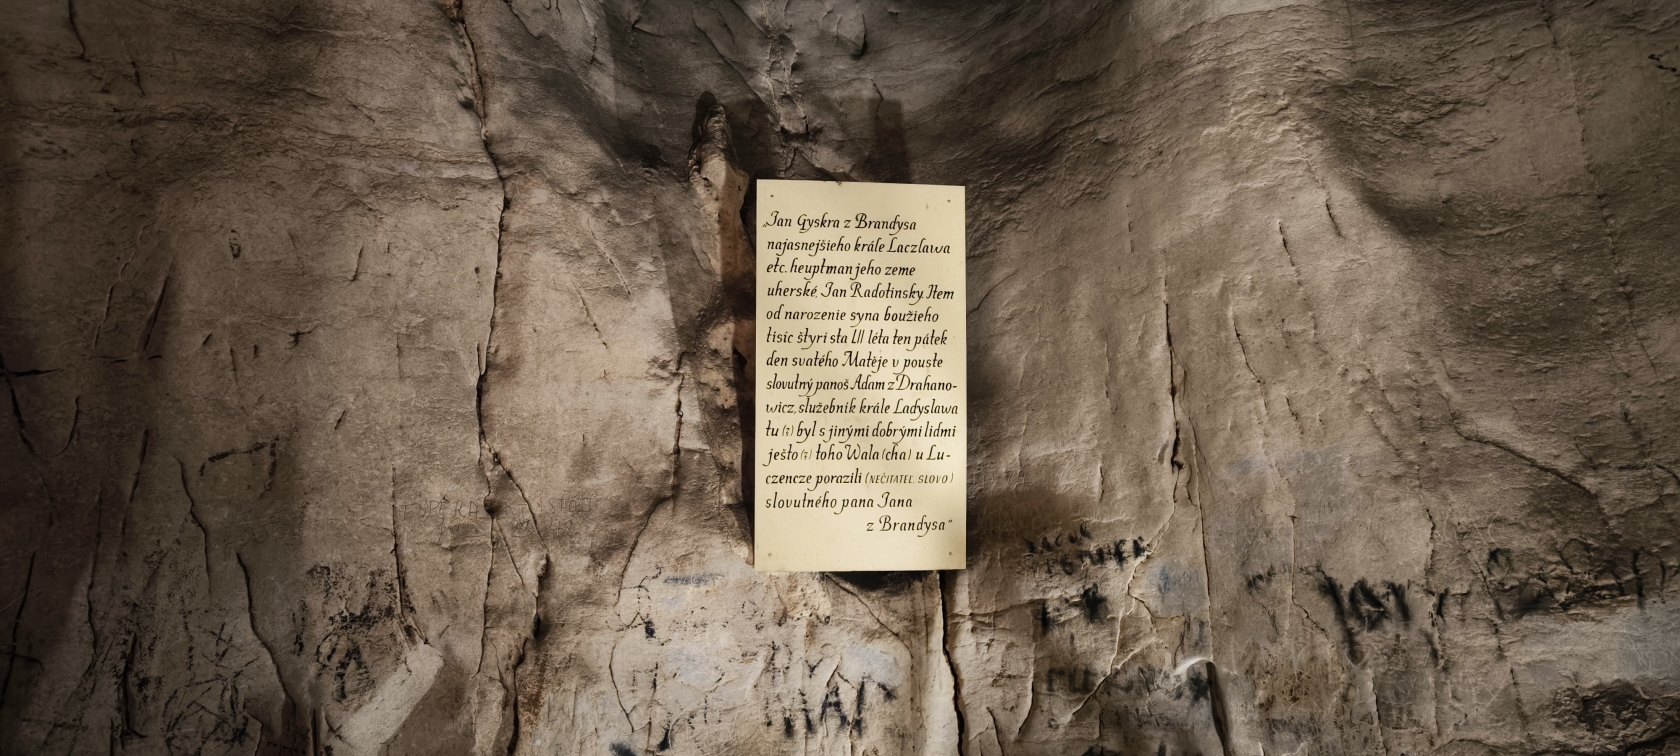 „Jan Gyskra z Brandysa
najasnejšieho krále Laczlawa
etc. heuptman jeho zeme
uherské, Jan Radotinsky. Item
od narozenie syna boužieho
tisíc štyri sta LII léta ten pátek
den svatého Matěje v pouste
slovutný panoš Adam z Drahano-
wicz, služebník krále Ladyslawa
tu (?) byl s jinými dobrými lidmi
ješto (?) toho Wala(cha) u Lu-
czencze porazili (NEČITATEL. SLOVO)
slovutného pana Jana
z Brandysa“